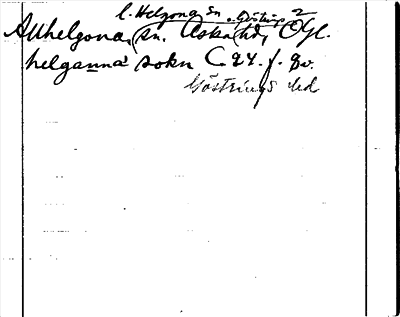 l. Helgona sn o. Göstrings 2
Allhelgona, sn. Aska hd, Ögl.
helganna sokn C 24 f. 8v.
Göstrings hd